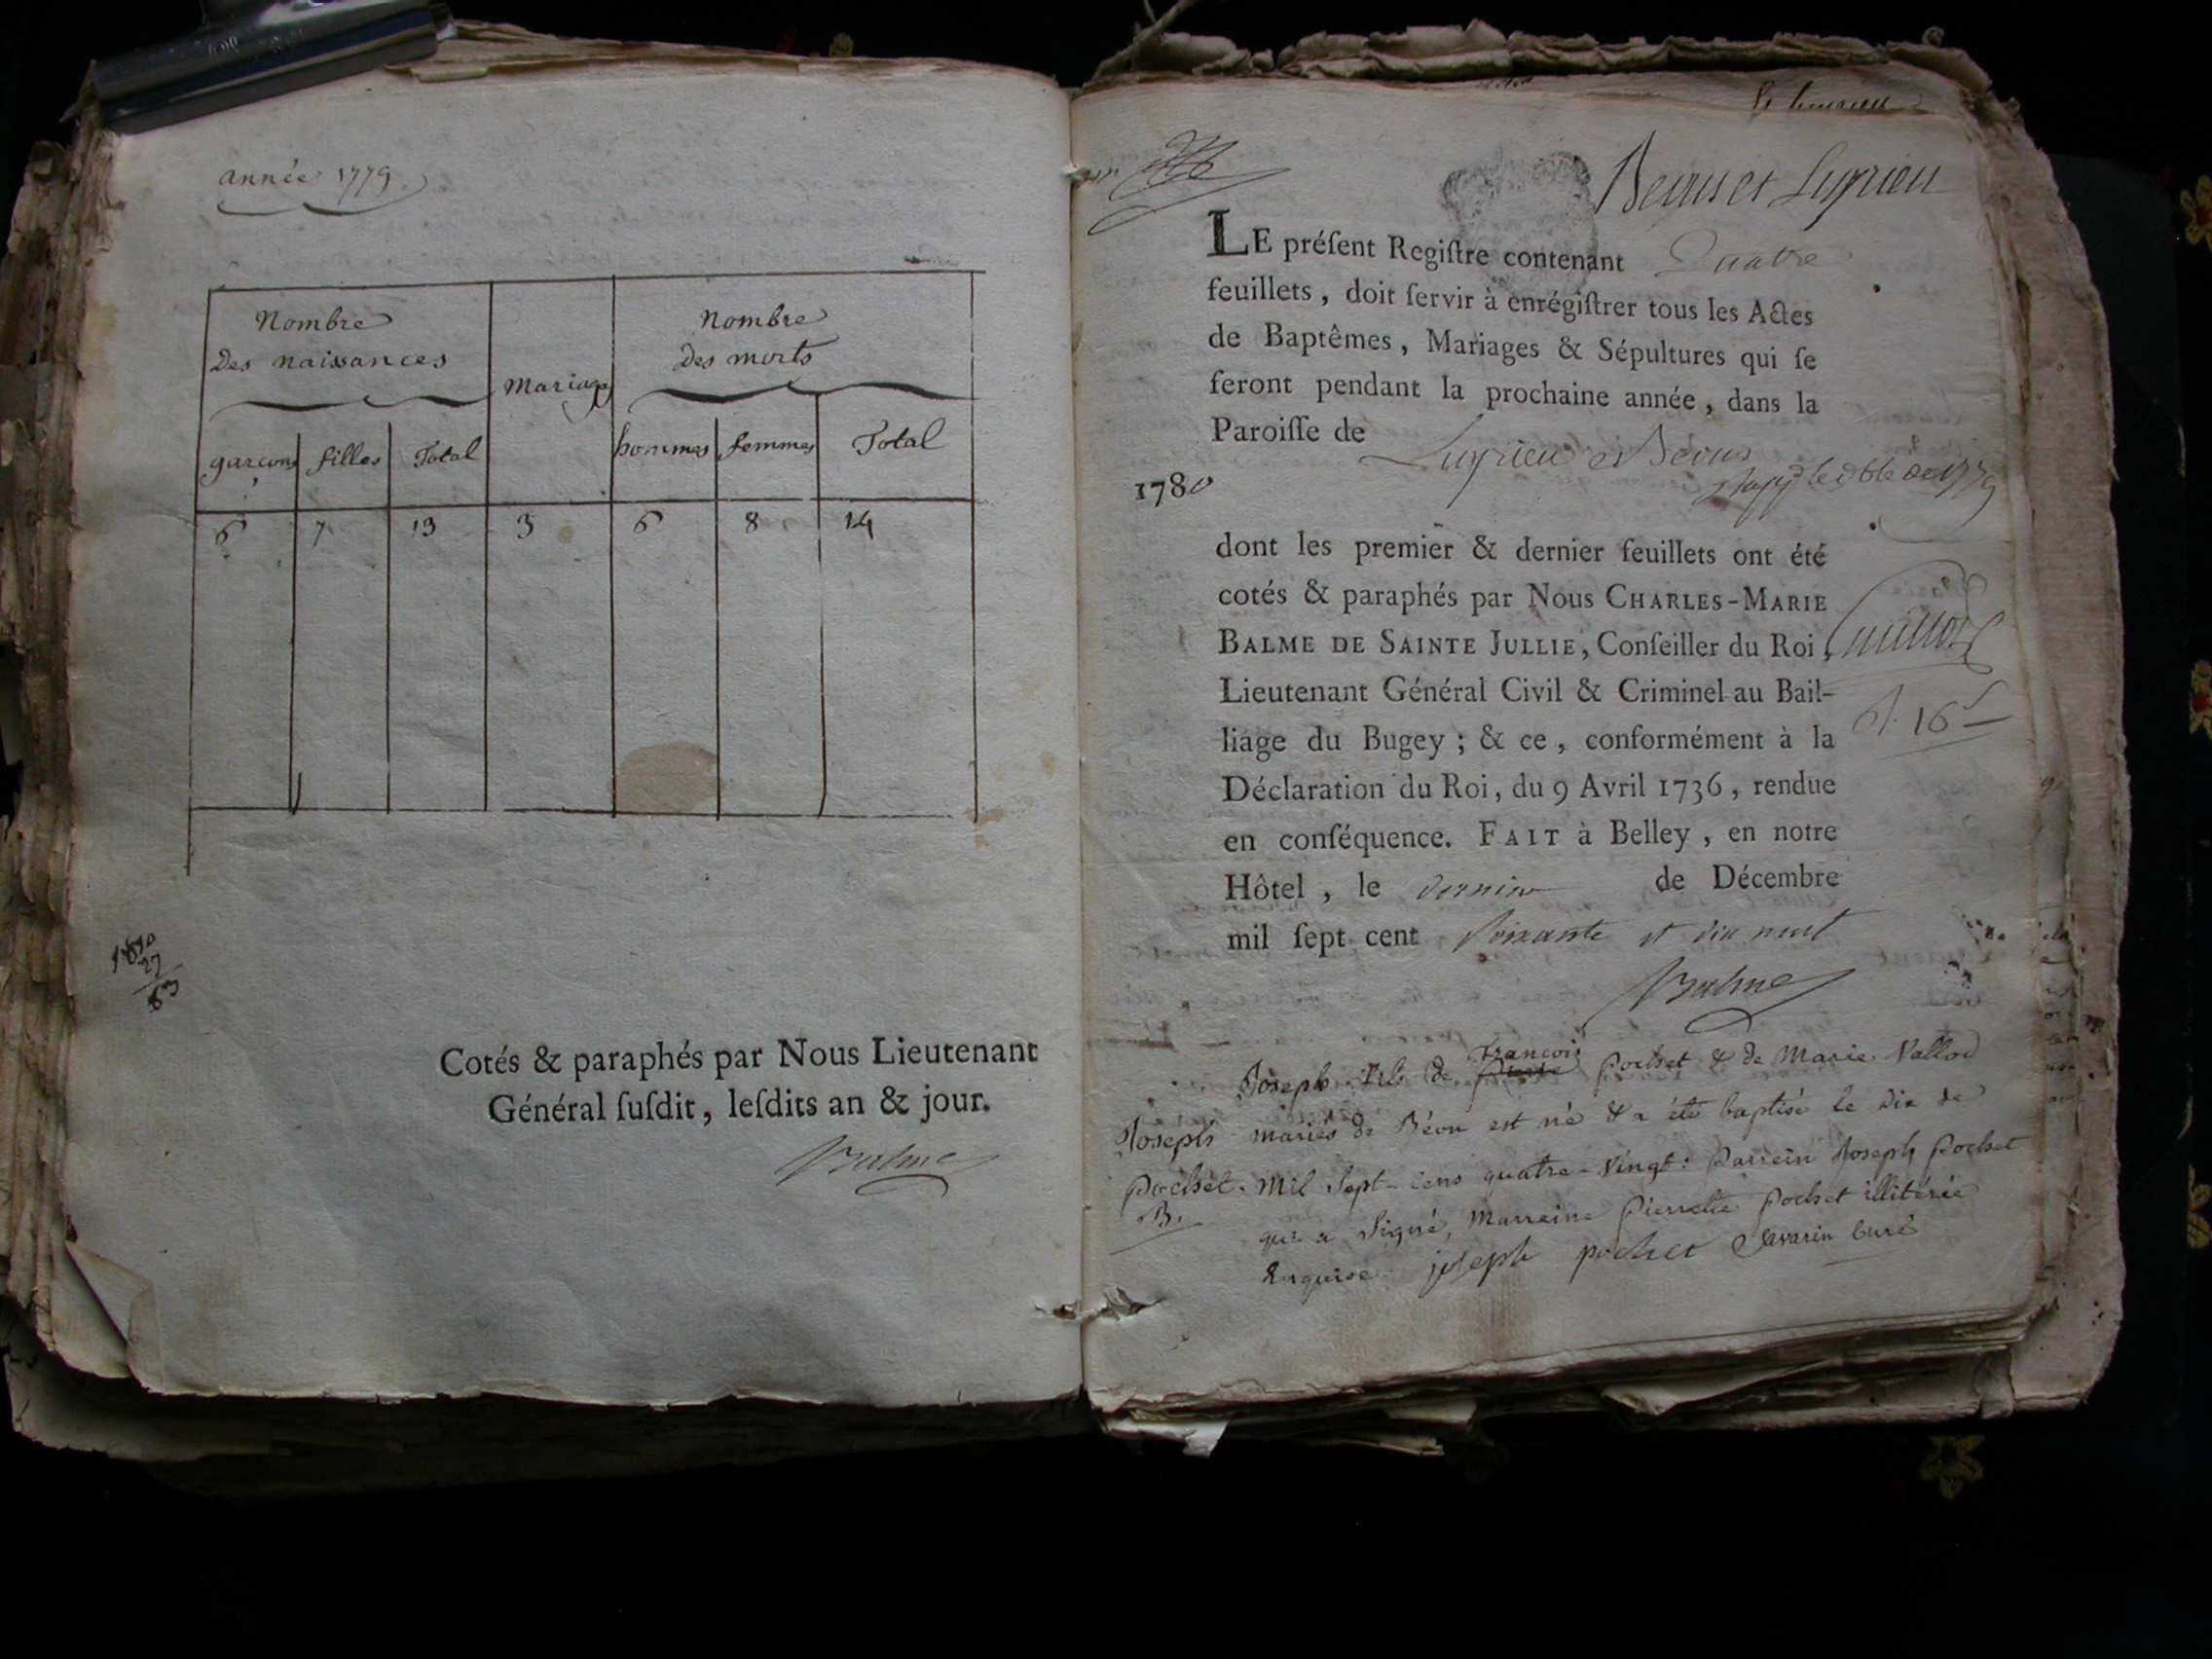 année 1779
Nombre
Des naissances
Mariages
Nombre
des morts
garcons filles Total
hommes femmes Total
6 7 13 3 6 8 14
27
63
Cotés & paraphés par Nous Lieutenant
Général ſuſdit, leſdits an & jour.
Balme
Beonset Luyrieu
LE préſent Regiſtre contenant Quatre
feuillets, doit ſervir à enrégiſtrer tous les Actes
de Baptêmes, Mariages & Sépultures qui ſe
feront pendant la prochaine année, dans la
Paroiſſe de Luyrieu et Béons
1780
dont les premier & dernier feuillets ont été
cotés & paraphés par Nous CHARLES-MARIE
BALME DE SAINTE JULLIE, Conſeiller du Roi,
Lieutenant Général Civil & Criminel au Bail-
liage du Bugey ; & ce, conformément à la
16
Déclaration du Roi, du 9 Avril 1736, rendue
en conſéquence. FAIT à Belley, en notre
Hôtel, le dernier de Décembre
mil ſept cent soixante et dix neuf
Balme
Joseph Pochet. B.
Joseph fils de François Pochet & de Marie Vallod
mariés de Béon est né & a été baptisé le dix de
mil sept-cens quatre-vingt: Parrein Joseph Pochet
qui a signé, Marreine Pierrette Pochet illitérée
Enquise joseph pochet Savarin Curé